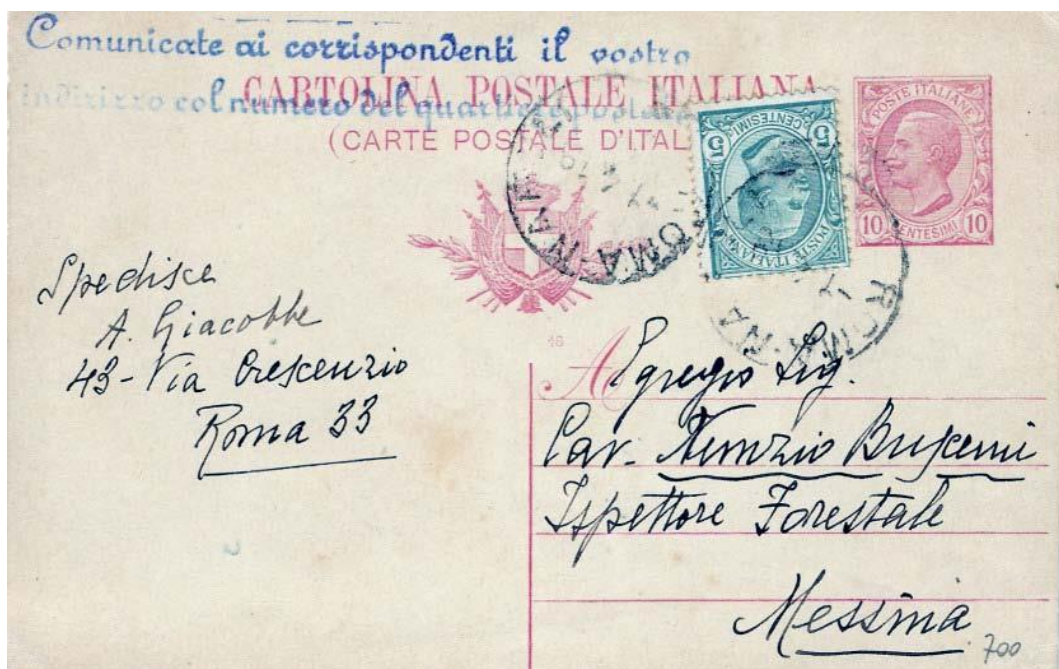 Comunicate ai corrispondenti il vostro
indirizzo col numero del quartiere postale
CARTOLINA POSTALE ITALIANA
(CARTE POSTALE D'ITAL
POSTE ITALIANE
10 CENTESIMI 10
5 CENTESIMI 5
POSTE ITALIANE
ROMA
ROMA
Spedisce
A. Giacobbe
43 - Via Crescenzio
Roma 33
16
A
Egregio Sig.
Cav. Nunzio Buscemi
Ispettore Forestale
Messina
700